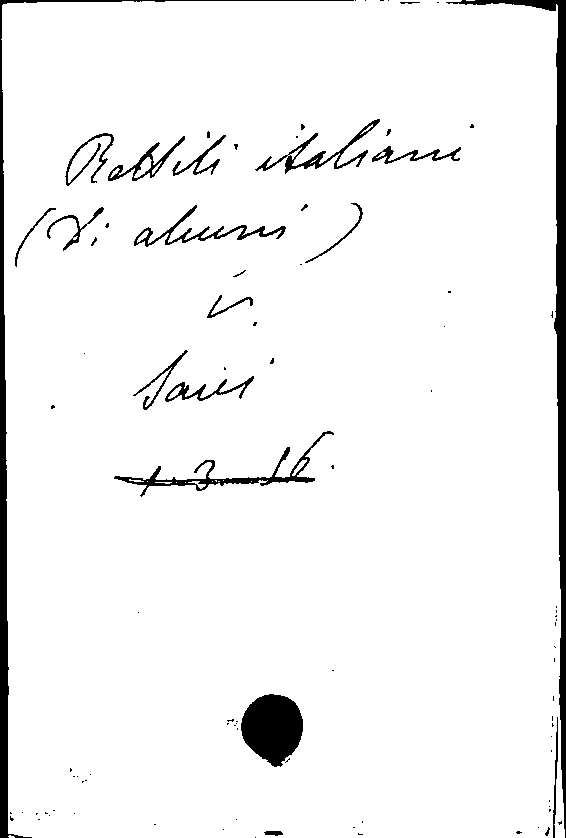 Rettili italiani
(Di alcuni)
v.
Savi
1-3-16.